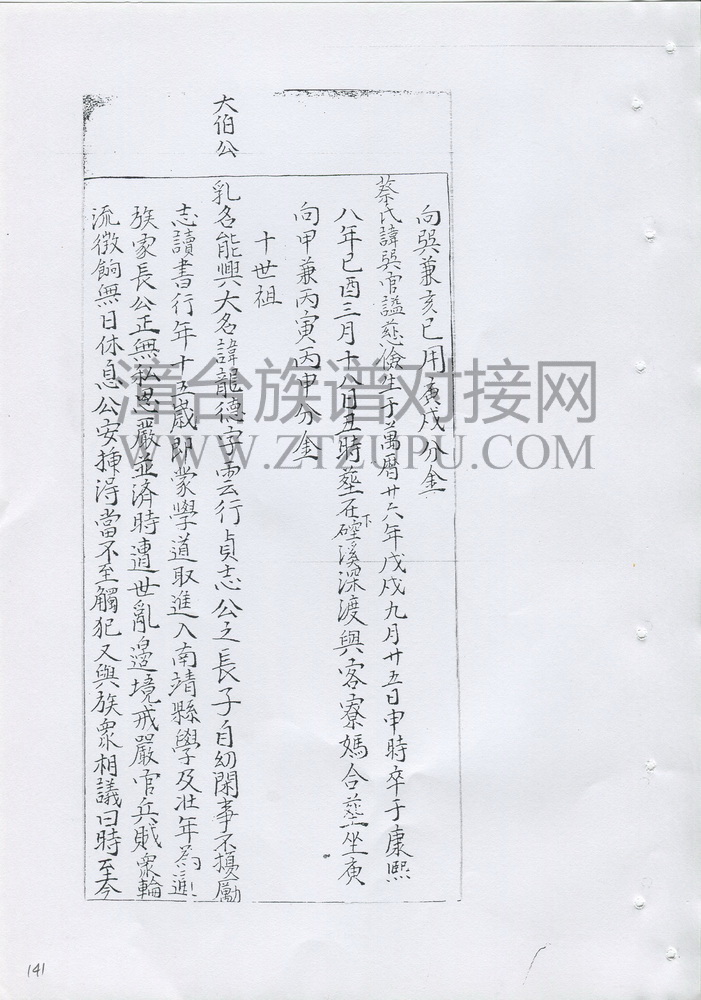 向巽兼亥巳用庚戌分金
蔡氏諱巽官謚慈儉生于萬曆廿六年戊戌九月廿五日申時卒于康熙
八年己酉三月十八日丑時葬在下礶溪深渡與客寮媽合葬坐庚
向甲兼丙寅丙申分金
十世祖
大伯公
乳名能興大名諱龍德字雲行貞志公之長子自幼閑事不擾勵
志讀書行年十五歲即蒙學道取進入南靖縣學及壯年為進
族家長公正無私恩嚴並済時遭世亂邊境戒嚴官兵賊衆輪
流徴餉無日休息公安揷淂當不至觸犯又與族衆相議曰時至今
漳台族谱对接网
WWW.ZTZUPU.COM
141